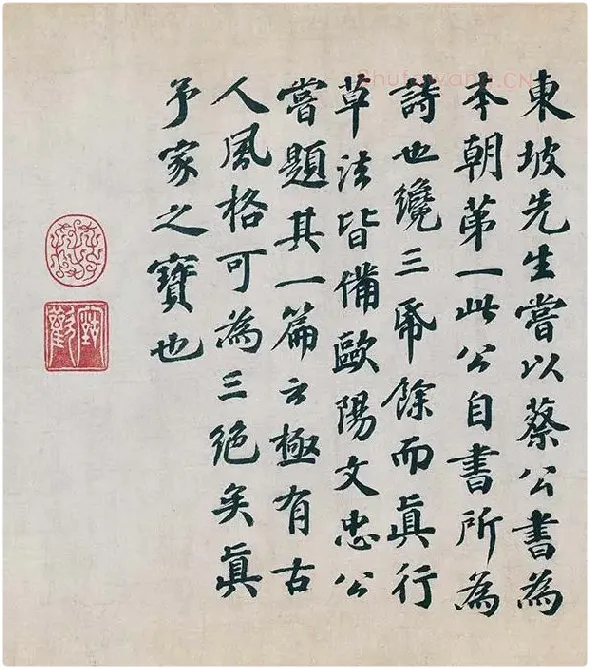 東坡先生嘗以蔡公書為
本朝第一此公自書所為
詩也纔三帋餘而眞行
草法皆備歐陽文忠公
嘗題其一篇云極有古
人風格可為三絕矣眞
予家之寶也